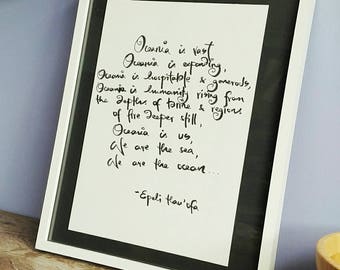 Oceania is vast
Oceania is expanding,
Oceania is hospitable & generous,
Oceania is humanity rising from
the depths of brine & regions
of fire deeper still,
Oceania is us,
We are the sea,
We are the ocean...
-Epeli Hau'ofa